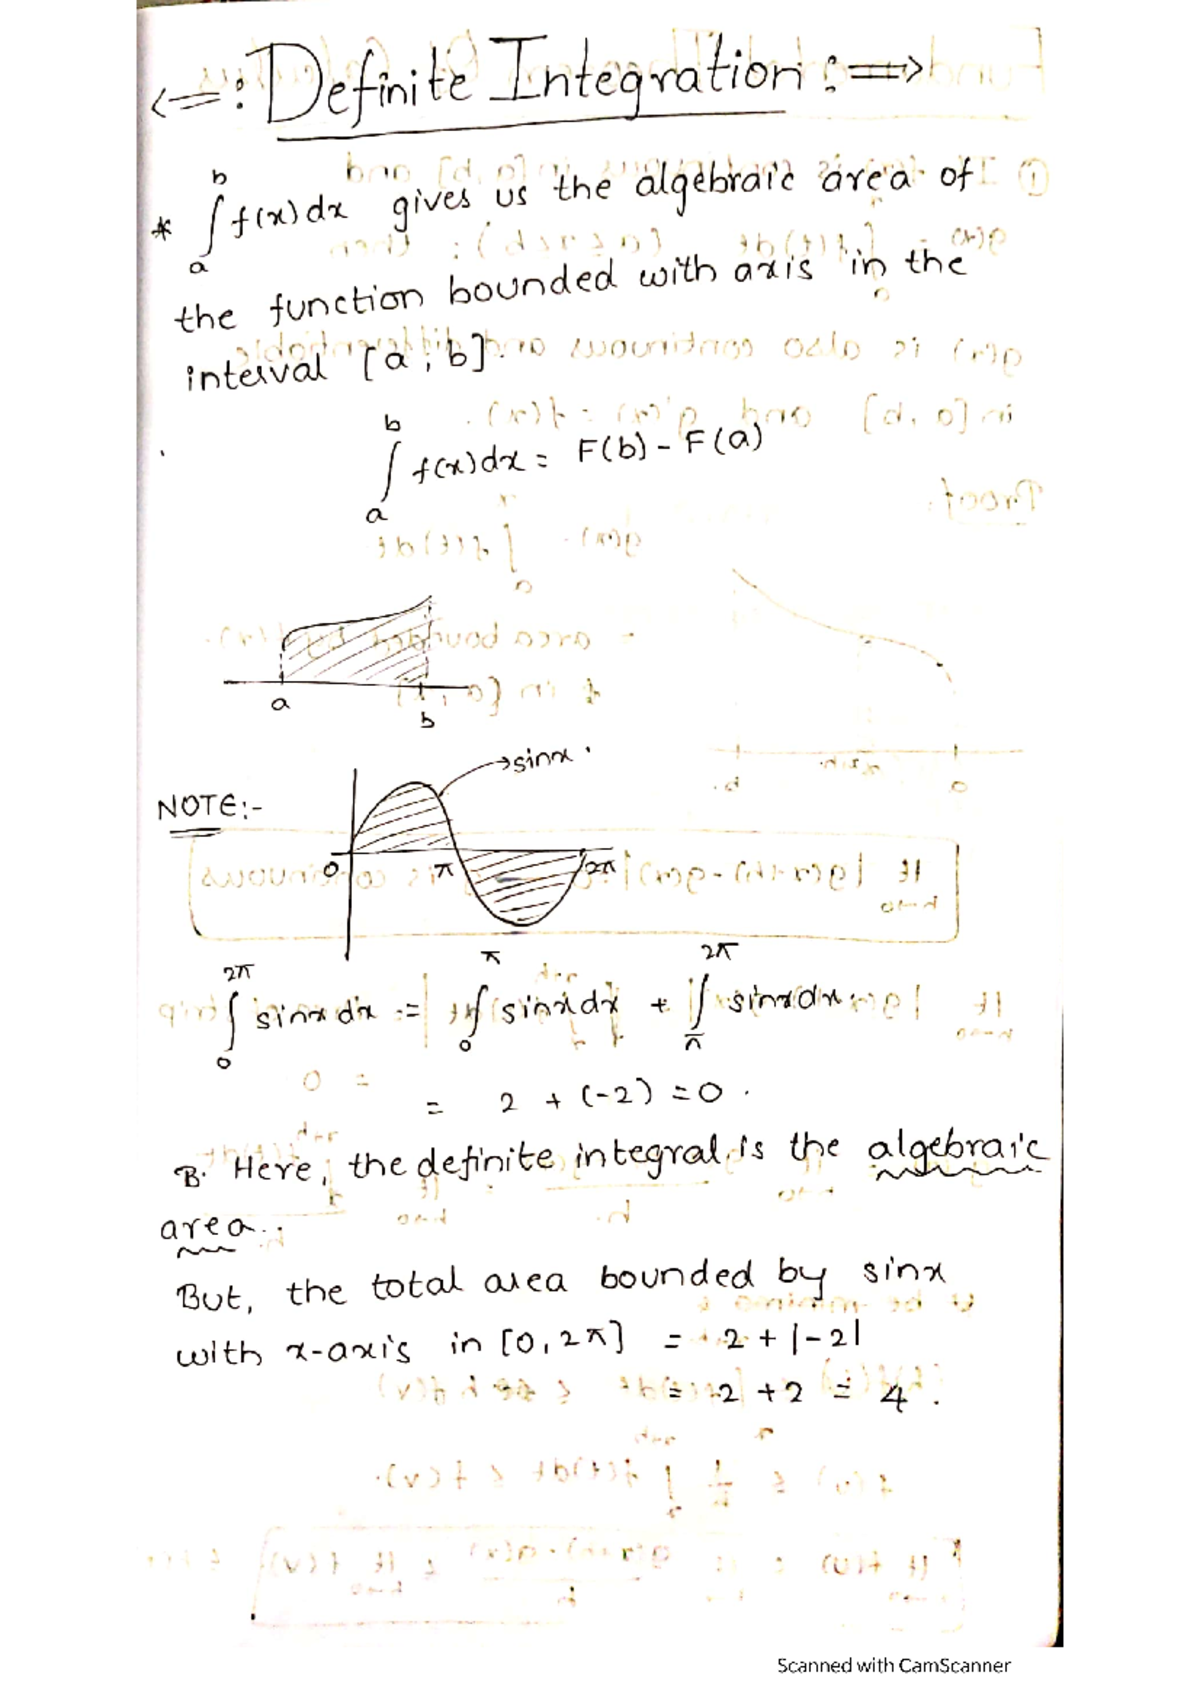 <=: Definite Integration :=>
* ∫_a^b f(x)dx gives us the algebraic area of
the function bounded with axis in the
interval [a, b].
∫_a^b f(x)dx = F(b) - F(a)
a
b
→ sinx
NOTE:-
0 π 2π
∫_0^2π sinx dx = ∫_0^π sinx dx + ∫_π^2π sinx dx
= 2 + (-2) = 0.
B. Here, the definite integral is the algebraic
area.
But, the total area bounded by sinx
with x-axis in [0, 2π] = 2 + |-2|
= 2 + 2 = 4.
Scanned with CamScanner